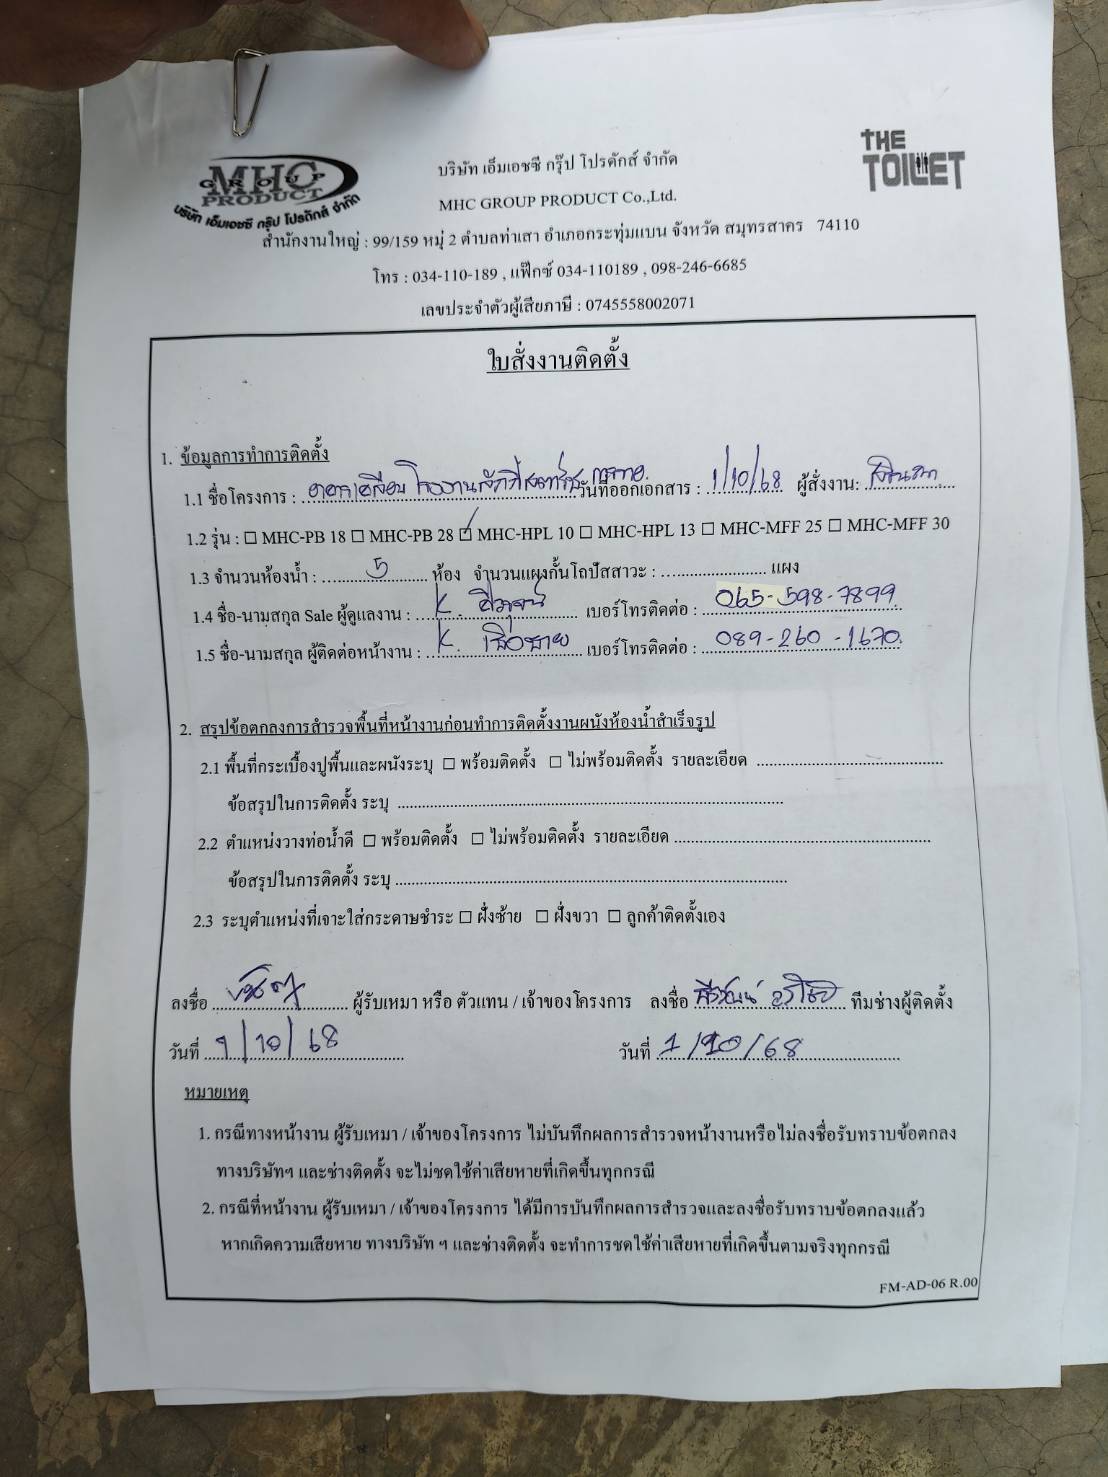 MHC
GROUP
PRODUCT
บริษัท เอ็มเอชซี กรุ๊ป โปรดักส์ จำกัด
THE
TOILET
บริษัท เอ็มเอชซี กรุ๊ป โปรดักส์ จำกัด
MHC GROUP PRODUCT Co.,Ltd.
สำนักงานใหญ่ : 99/159 หมู่ 2 ตำบลท่าเสา อำเภอกระทุ่มแบน จังหวัด สมุทรสาคร 74110
โทร : 034-110-189 , แฟ๊กซ์ 034-110189 , 098-246-6685
เลขประจำตัวผู้เสียภาษี : 0745558002071
ใบสั่งงานติดตั้ง
1. ข้อมูลการทำการติดตั้ง
1.1 ชื่อโครงการ : วันที่ออกเอกสาร : 1/10/68 ผู้สั่งงาน:
1.2 รุ่น : ☐ MHC-PB 18 ☐ MHC-PB 28 ☑ MHC-HPL 10 ☐ MHC-HPL 13 ☐ MHC-MFF 25 ☐ MHC-MFF 30
1.3 จำนวนห้องน้ำ : 5 ห้อง จำนวนแผงกั้นโถปัสสาวะ : ........................ แผง
1.4 ชื่อ-นามสกุล Sale ผู้ดูแลงาน : K. เบอร์โทรติดต่อ : 065-598-7899
1.5 ชื่อ-นามสกุล ผู้ติดต่อหน้างาน : K. เบอร์โทรติดต่อ : 089-260-1670
2. สรุปข้อตกลงการสำรวจพื้นที่หน้างานก่อนทำการติดตั้งงานผนังห้องน้ำสำเร็จรูป
2.1 พื้นที่กระเบื้องปูพื้นและผนังระบุ ☐ พร้อมติดตั้ง ☐ ไม่พร้อมติดตั้ง รายละเอียด ........................
ข้อสรุปในการติดตั้ง ระบุ ........................
2.2 ตำแหน่งวางท่อน้ำดี ☐ พร้อมติดตั้ง ☐ ไม่พร้อมติดตั้ง รายละเอียด ........................
ข้อสรุปในการติดตั้ง ระบุ ........................
2.3 ระบุตำแหน่งที่เจาะใส่กระดาษชำระ ☐ ฝั่งซ้าย ☐ ฝั่งขวา ☐ ลูกค้าติดตั้งเอง
ลงชื่อ ผู้รับเหมา หรือ ตัวแทน / เจ้าของโครงการ ลงชื่อ ทีมช่างผู้ติดตั้ง
วันที่ 1/10/68 วันที่ 1/10/68
หมายเหตุ
1. กรณีทางหน้างาน ผู้รับเหมา / เจ้าของโครงการ ไม่บันทึกผลการสำรวจหน้างานหรือไม่ลงชื่อรับทราบข้อตกลง
ทางบริษัทฯ และช่างติดตั้ง จะไม่ชดใช้ค่าเสียหายที่เกิดขึ้นทุกกรณี
2. กรณีที่หน้างาน ผู้รับเหมา / เจ้าของโครงการ ได้มีการบันทึกผลการสำรวจและลงชื่อรับทราบข้อตกลงแล้ว
หากเกิดความเสียหาย ทางบริษัท ฯ และช่างติดตั้ง จะทำการชดใช้ค่าเสียหายที่เกิดขึ้นตามจริงทุกกรณี
FM-AD-06 R.00